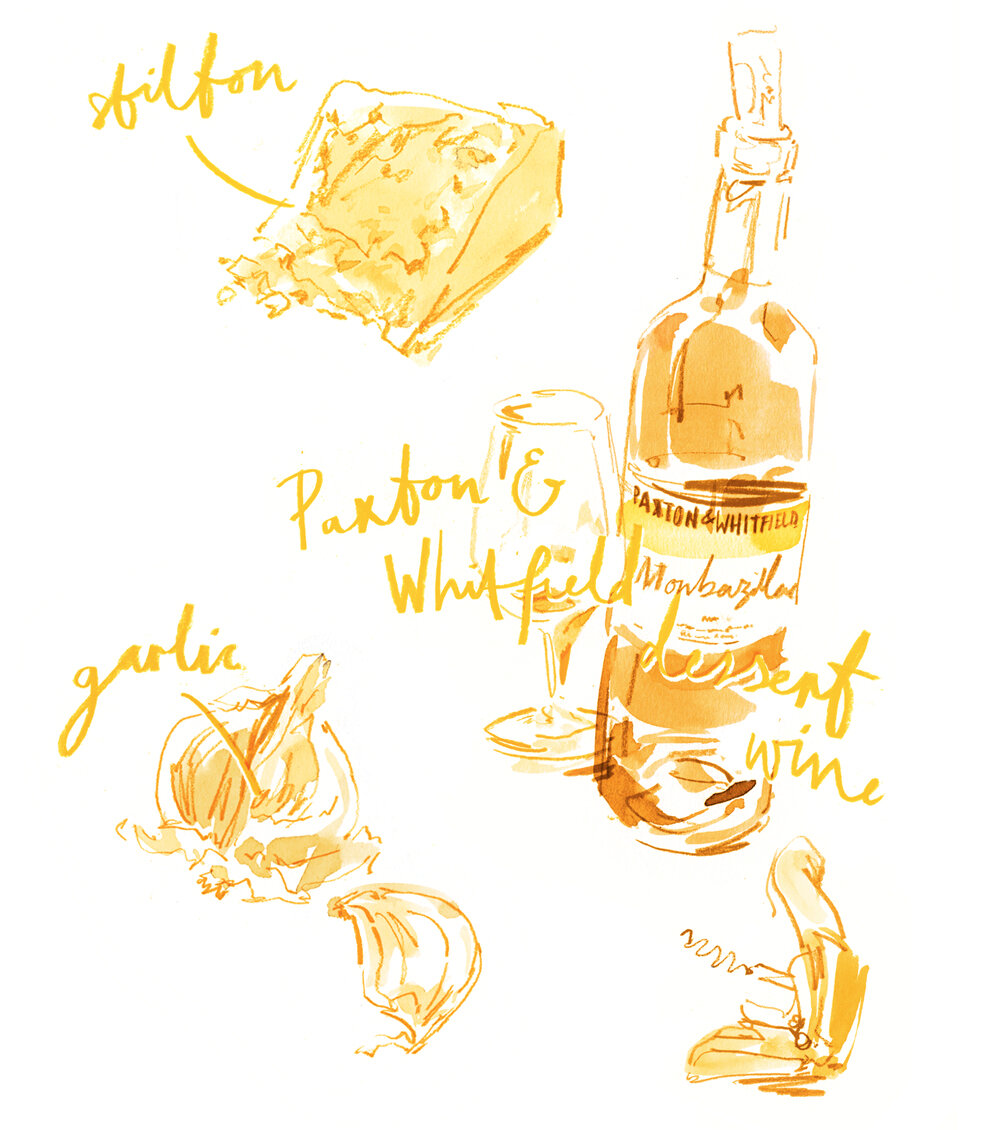 stilton
Paxton &
Whitfield
dessert
wine
PAXTON & WHITFIELD
Monbazillac
garlic